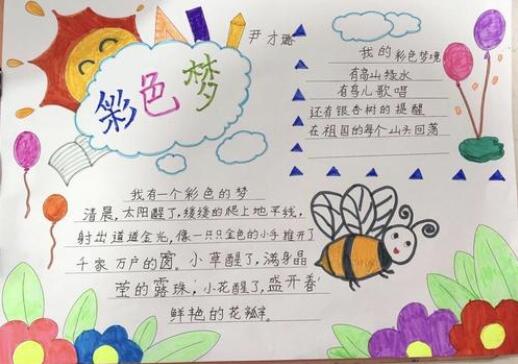 彩色梦
尹才璐
我的彩色梦境
有高山绿水
有鸟儿歌唱
还有银杏树的提醒
在祖国的每个山头回荡
我有一个彩色的梦
清晨,太阳醒了,缓缓的爬上地平线,
射出道道金光,像一只只金色的小手推开了
千家万户的窗。小草醒了,满身晶
莹的露珠,小花醒了,盛开着
鲜艳的花瓣。